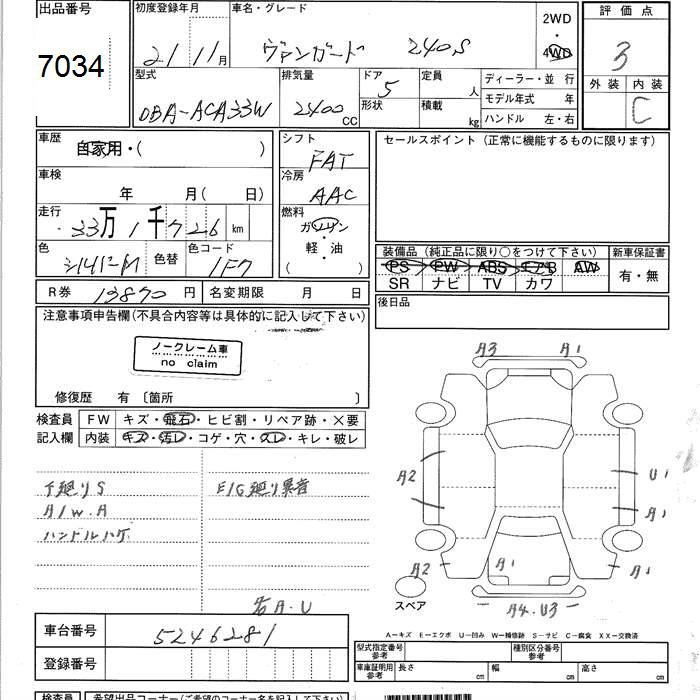 出品番号
7034
初度登録年月
21 11月
車名・グレード
ヴァンガード 240S
2WD
・
4WD
評価点
3
外装 内装
C
型式
DBA-ACA33W
排気量
2400 CC
ドア 5
形状
定員
人
積載
kg
ディーラー・並行
モデル年式 年
ハンドル 左・右
車歴
自家用・( )
車検
年 月( 日)
走行
33万1千726 km
色
シルバーM
色替
色コード
1F7
シフト
FAT
冷房
AAC
燃料
ガソリン
・
軽・油
( )
セールスポイント (正常に機能するものに限ります)
装備品 (純正品に限り○をつけて下さい)
新車保証書
PS PW ABS エアB AW
SR ナビ TV カワ
有・無
後日品
R券 13870 円
名変期限 月 日
注意事項申告欄(不具合内容等は具体的に記入して下さい)
ノークレーム車
no claim
修復歴 有 〔箇所 〕
検査員
記入欄
FW キズ・飛石・ヒビ割・リペア跡・×要
内装 キズ・汚レ・コゲ・穴・スレ・キレ・破レ
下廻りS
A/W.A
ハンドルハゲ
E/G廻り異音
右A.U
A3 A1
A2 U1
A1
A2 A1 A1 A1
A4.U3
スペア
A-キズ E-エクボ U-凹み W-補修跡 S-サビ C-腐食 XX-交換済
車台番号 5246281
登録番号
型式指定番号
参考
種別区分番号
参考
車庫証明用
参考
長さ cm 幅 cm 高さ cm
検査員
希望出品コーナー(ご希望のコーナー名を記入下さい)